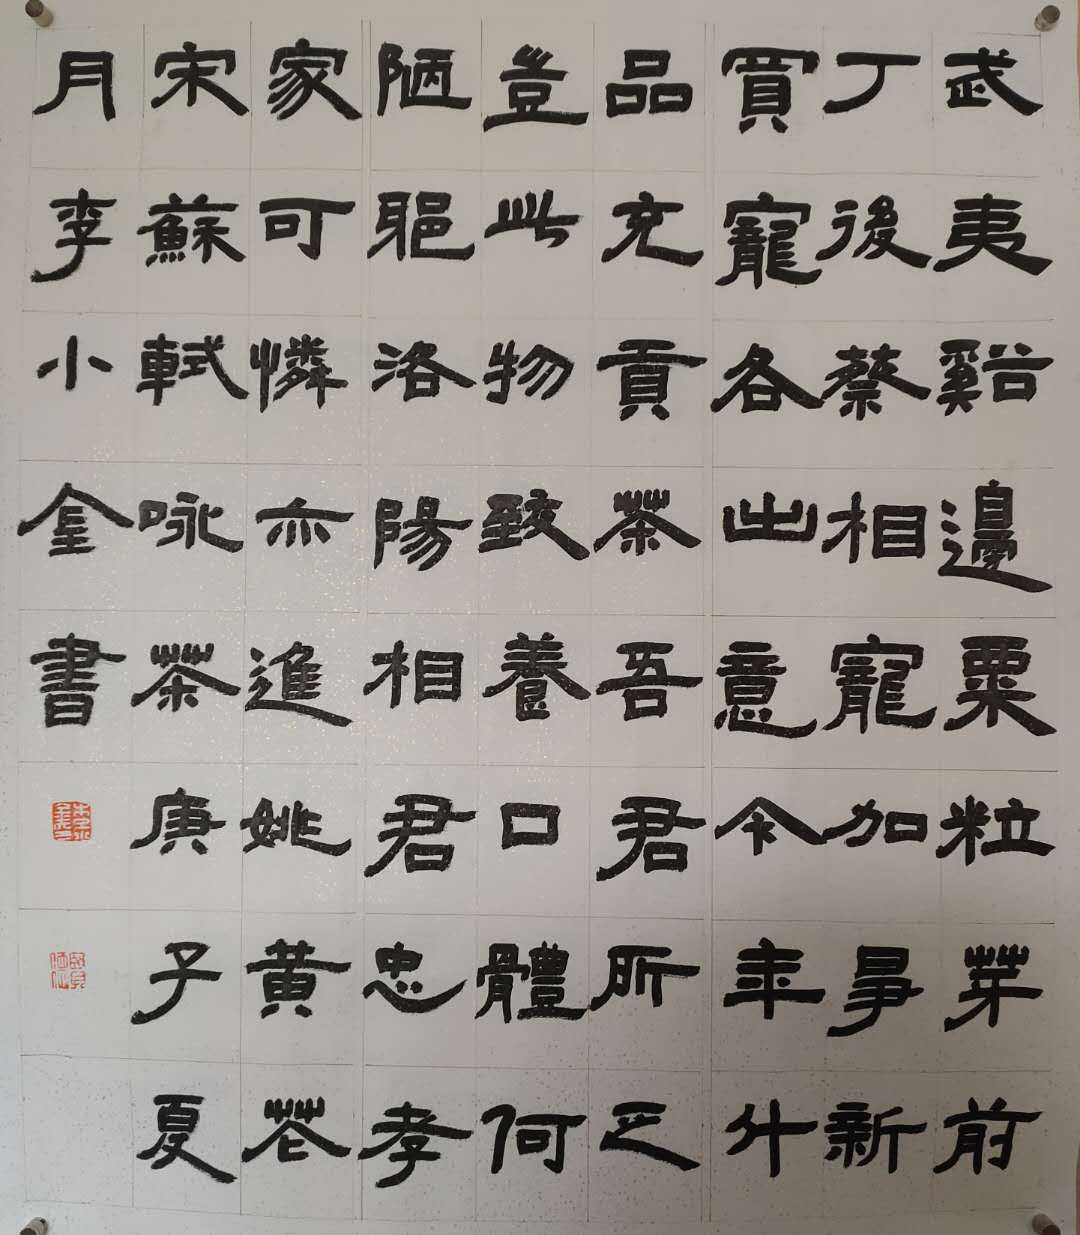 武夷谿邊粟粒芽前
丁後蔡相寵加爭新
買寵各出意今年斗
品充貢茶吾君所乏
豈此物致養口體何
陋耶洛陽相君忠孝
家可憐亦進姚黃花
宋蘇軾咏茶庚子夏
月李小奎書